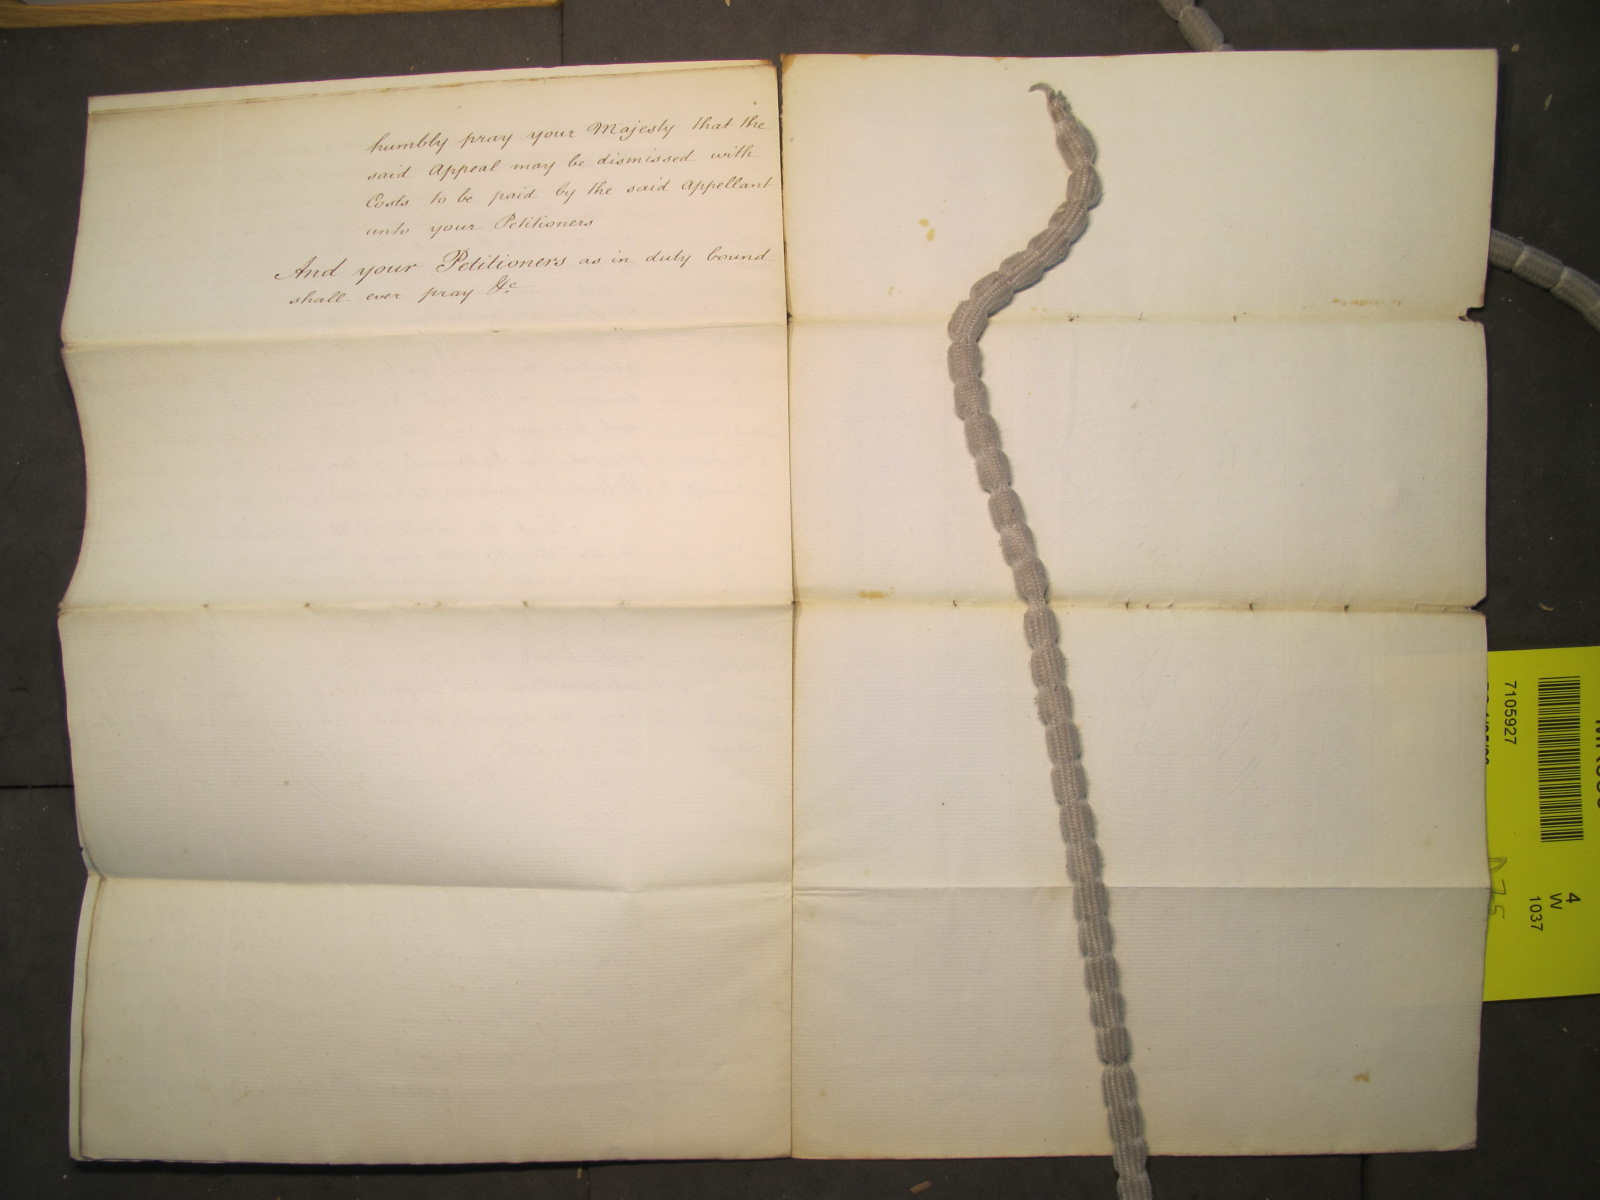 humbly pray your Majesty that the
said Appeal may be dismissed with
Costs to be paid by the said Appellant
unto your Petitioners
And your Petitioners as in duty bound
shall ever pray &c
7105927
4
W
1037